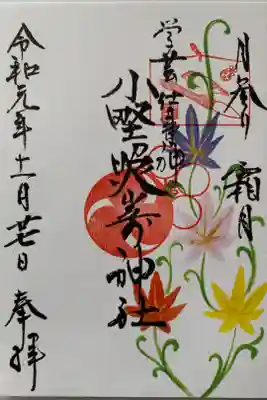 月参り 霜月
学芸仕事の神
小野照崎神社
令和元年十一月廿七日 奉拝